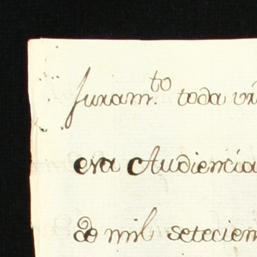 Juram.to toda
era Audiencia
de mil setecien